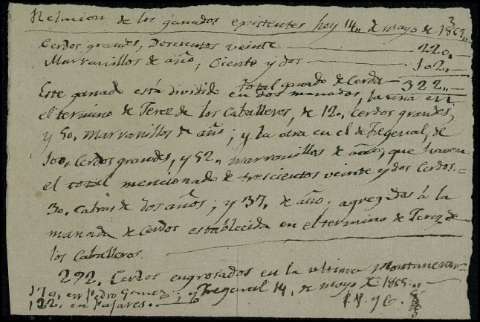 Relacion de los ganados existentes hoy 14,, de mayo de 1865,,
Cerdos grandes, Doscientos veinte 220,,
Marranillos de año, Ciento y dos 102,,
Total ganado de Cerda 322,,
Este ganado está dividido en dos manadas, la una en
el termino de Jerez de los Caballeros, de 120, Cerdos grandes,
y 50, marranillos de año; y la otra en el de Fregenal, de
100, Cerdos grandes, y 52,, marranillos de año, que hacen
el total mencionado de trescientos veinte y dos Cerdos.
30, Cabras de dos años, y 37, de año, agregadas á la
manada de Cerdos establecida en el termino de Jerez de
los Caballeros.
292, Cerdos engrosados en la ultima Montanera
en Pedro Gomez, y Fregenal 14, de mayo de 1865,,
122, en Pajares.